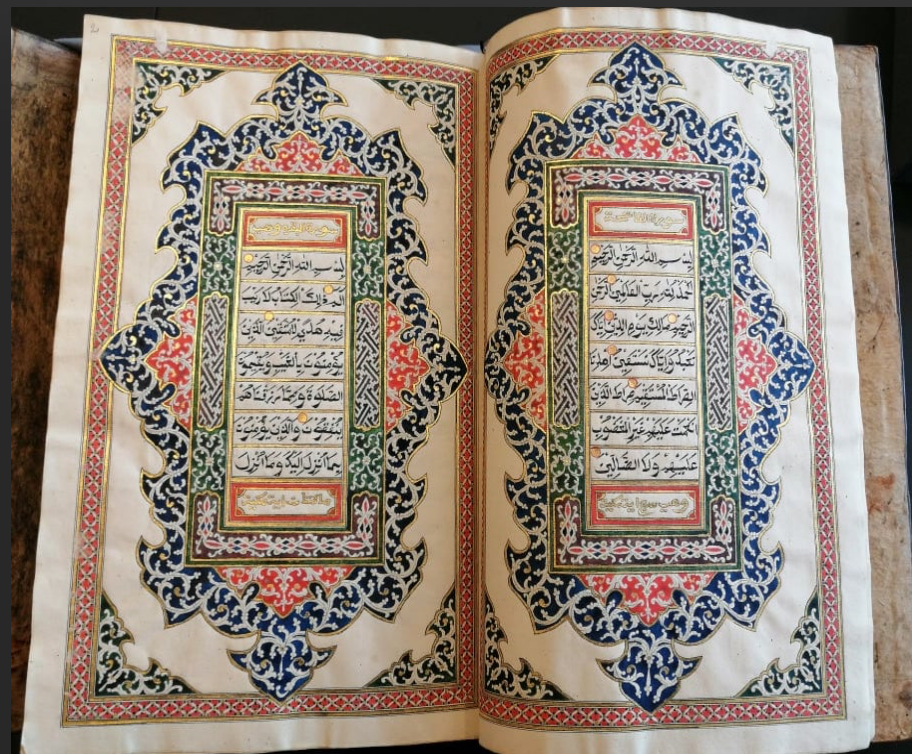 سورة الفاتحة
بسم الله الرحمن الرحيم
الحمد لله رب العالمين الرحمن
الرحيم مالك يوم الدين اياك
نعبد واياك نستعين اهدنا
الصراط المستقيم صراط الذين
انعمت عليهم غير المغضوب
عليهم ولا الضالين
وهي سبع
سورة البقرة وهي
بسم الله الرحمن الرحيم
الم ذلك الكتاب لا ريب
فيه هدى للمتقين الذين
يؤمنون بالغيب ويقيمون
الصلوة ومما رزقناهم
ينفقون والذين يؤمنون
بما انزل اليك وما انزل